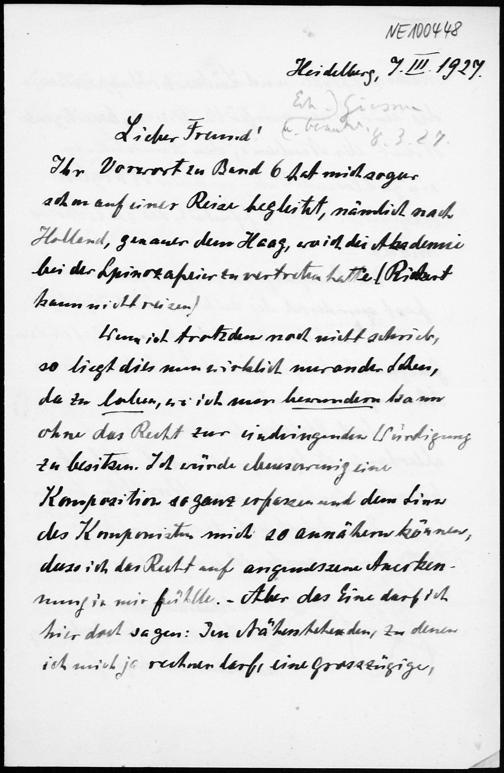 NE100448
Heidelberg, 7. III. 1927.
8.3.27.
Lieber Freund!
Ihr Vorwort zu Band 6 hat mich sogar
schon auf einer Reise begleitet, nämlich nach
Holland, genauer dem Haag, wo ich die Akademie
bei der Spinozafeier zu vertreten hatte. (Rickert
kann nicht reisen)
Wenn ich trotzdem noch nicht schrieb,
so liegt dies nun wirklich nur an der Scheu,
da zu loben, wo ich nur bewundern kann
ohne das Recht zur eindringenden Würdigung
zu besitzen. Ich würde ebensowenig eine
Komposition so ganz erfassen und dem Sinn
des Komponisten mich so annähern können,
dass ich das Recht auf angemessene Anerken-
nung in mir fühlte. - Aber das Eine darf ich
hier doch sagen: Den Näherstehenden, zu denen
ich mich ja rechnen darf, eine grosszügige,